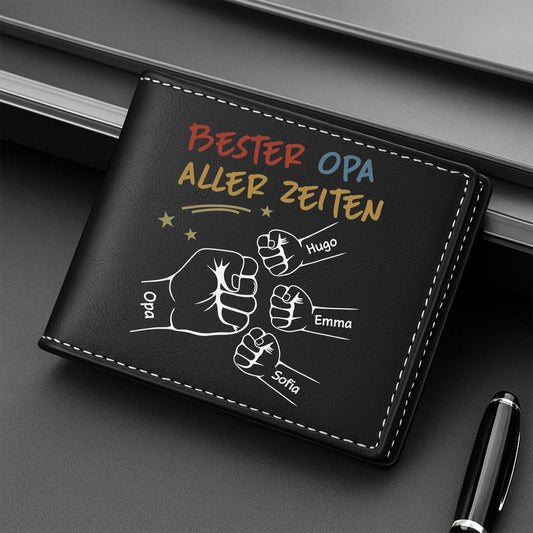 BESTER OPA
ALLER ZEITEN
Hugo
Opa
Emma
Sofia